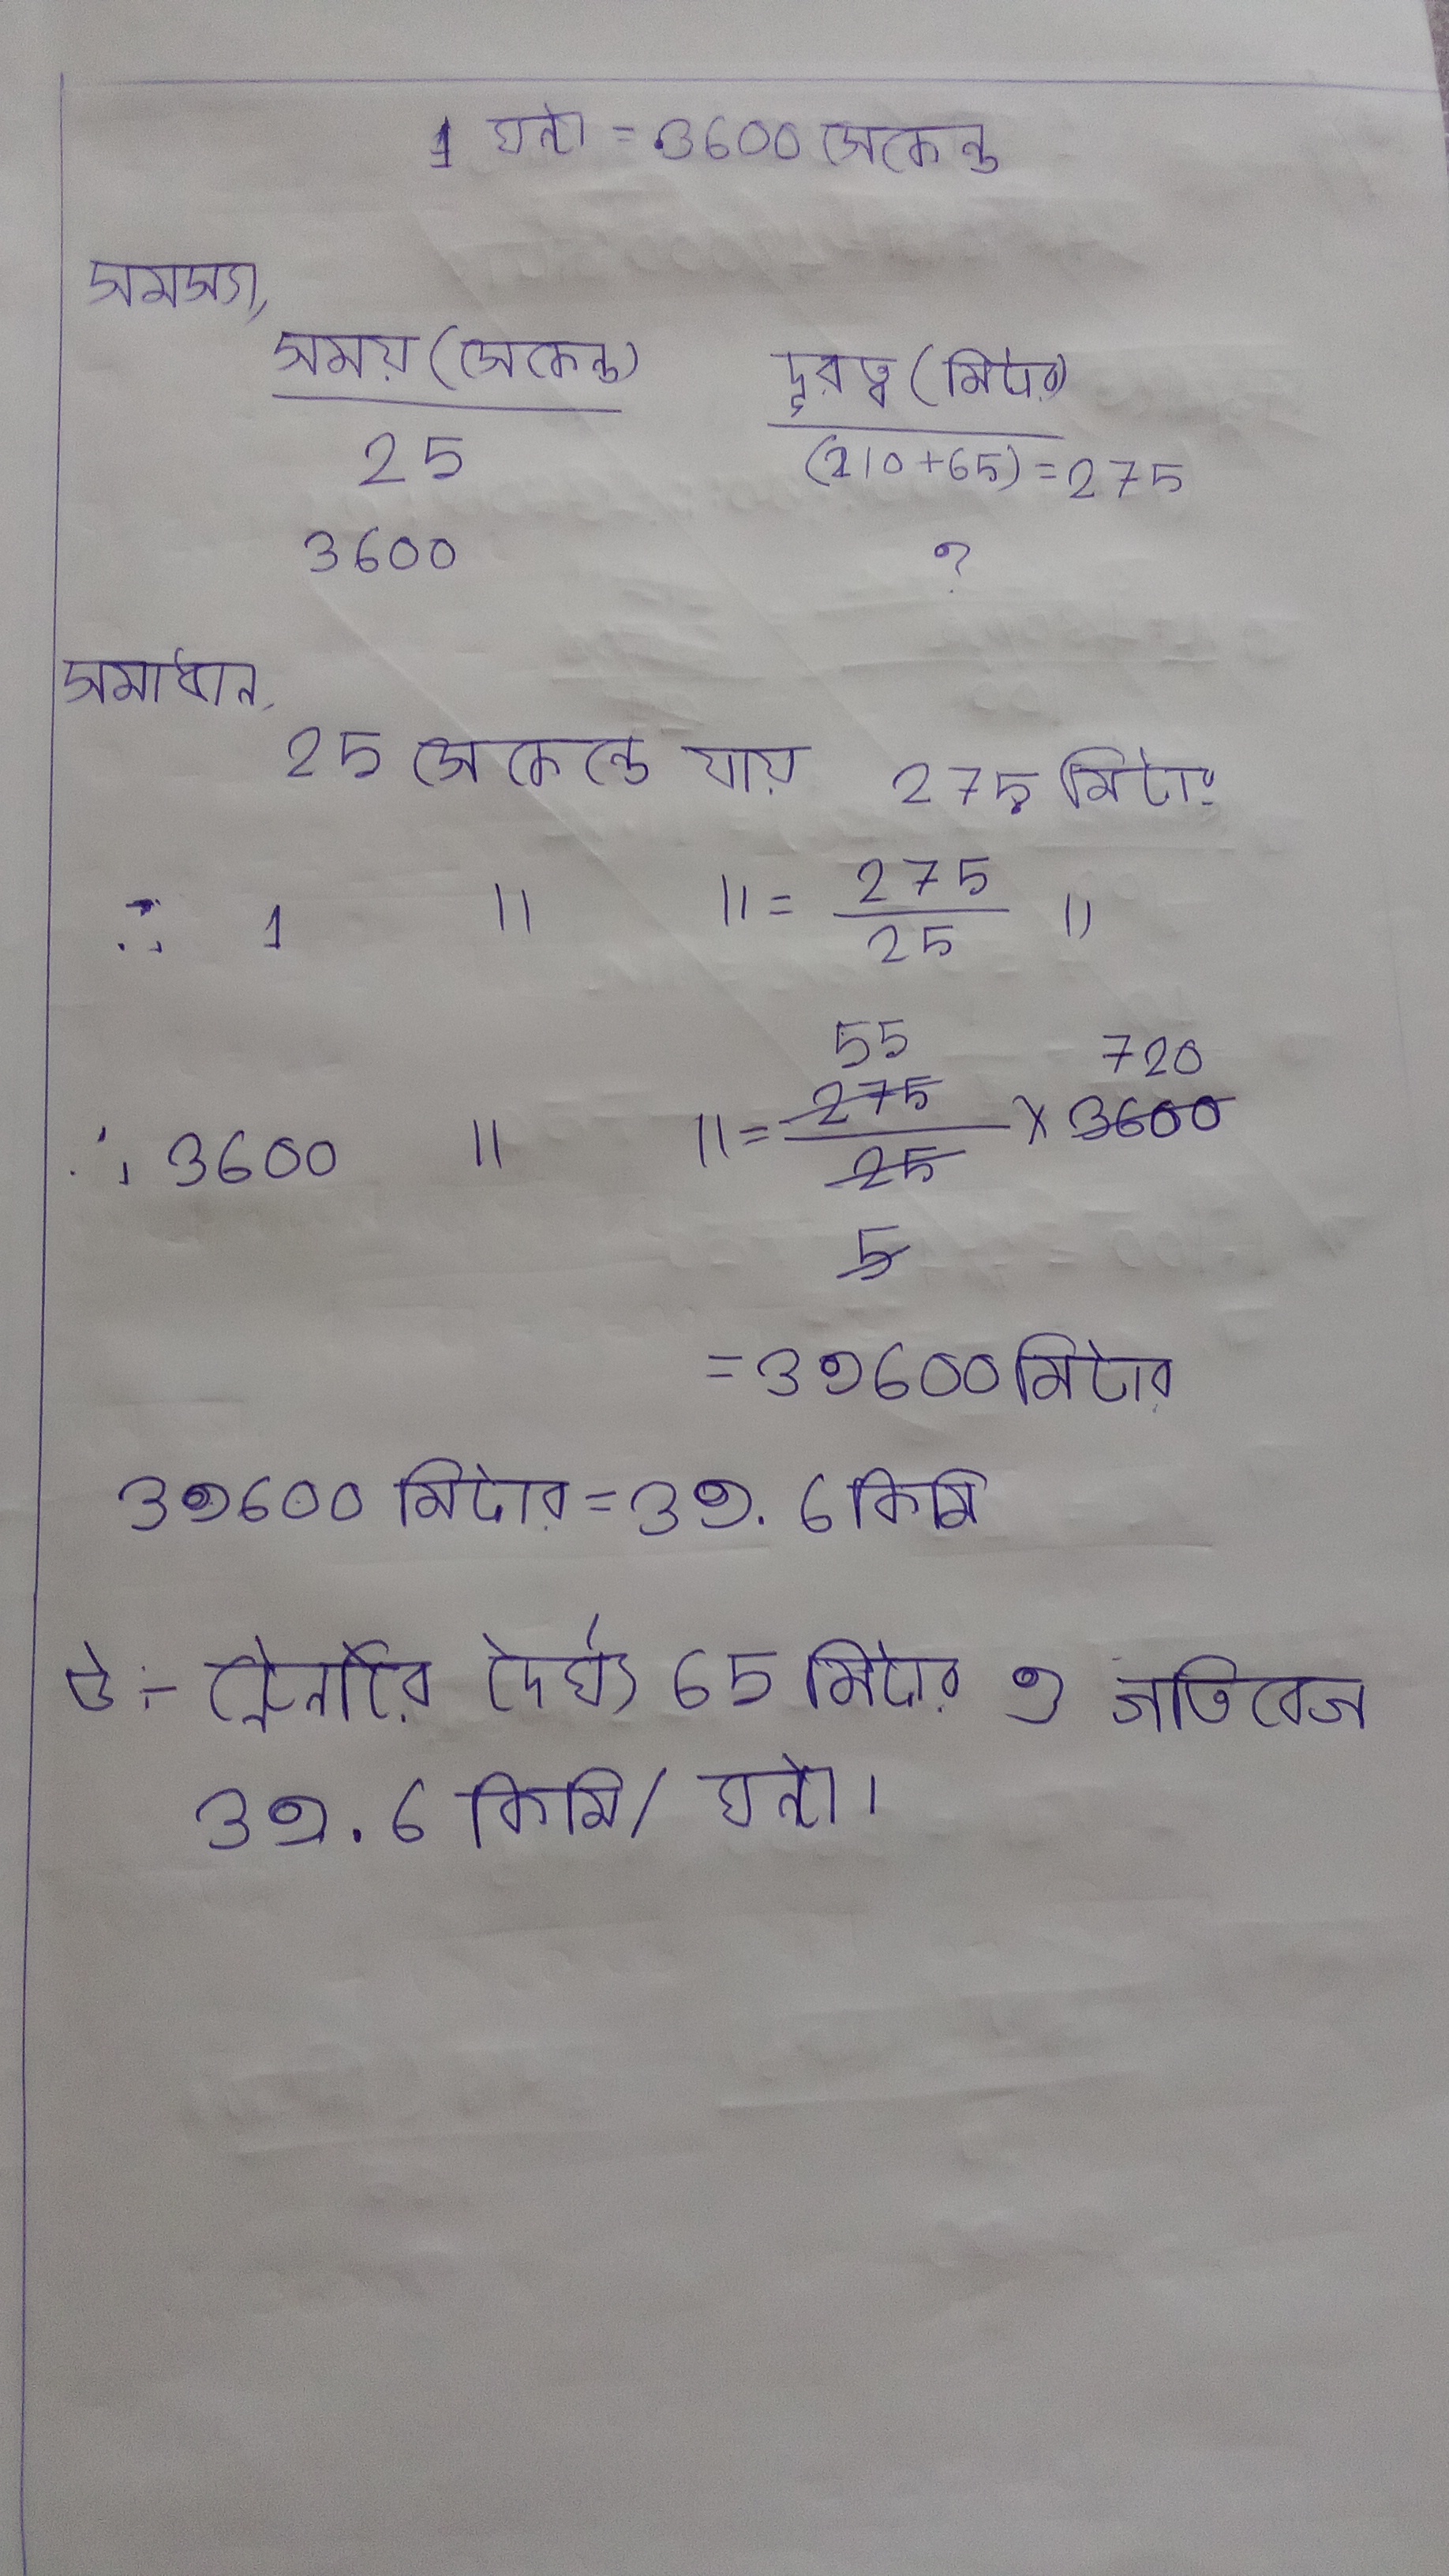 1 ঘন্টা = 3600 সেকেন্ড
সমস্যা,
সময় (সেকেন্ড) দূরত্ব (মিটার)
25 (210+65) = 275
3600 ?
সমাধান,
25 সেকেন্ডে যায় 275 মিটার
∴ 1 " " = 275/25 "
55 720
∴ 3600 " " = 275/25 × 3600
5
= 39600 মিটার
39600 মিটার = 39.6 কিমি
উঃ- ট্রেনটির দৈর্ঘ্য 65 মিটার ও গতিবেগ
39.6 কিমি/ ঘন্টা।